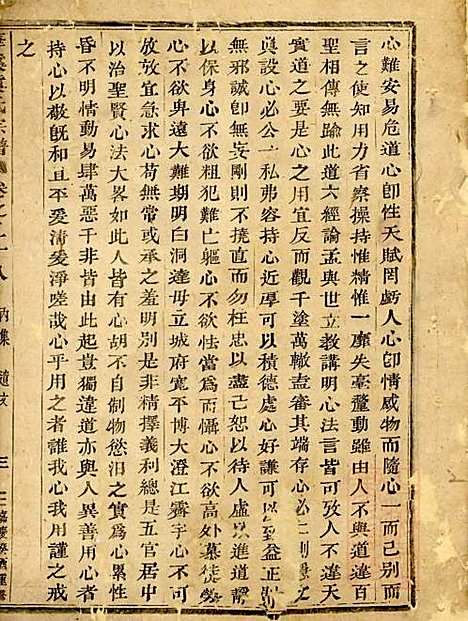 心難安易危道心卽性天賦罔虧人心卽情感物而隨心一而已别而
言之使知用力省察操持惟精惟一靡失毫釐動雖由人不與道違百
聖相傳無踰此道六經論孟與世立教講明心法言皆可攷人不違天
實道之要是心之用宜反而觀千塗萬轍宜審其端存心必
眞設心必公一私弗容持心近厚可以積德處心好謙可以益正
無邪誠卽無妄剛則不撓直而勿枉忠以盡己恕以待人虛以
以保身心不欲粗犯難亡軀心不欲怯當爲而懾心不欲高外慕徒勞
心不欲卑遠大難期明白洞達毋立城府寛平博大澄江霽宇心不可
放放宜急求心苟無常或承之羞明别是非精擇義利總是五官居中
以治聖賢心法大畧如此人皆有心胡不自制物慾汨之實爲心累性
昏不明情動易肆萬惡千非皆由此起豈獨違道亦與人異善用心者
持心以敬旣和且平爰淸爰淨嗟哉心乎用之者誰我心我用謹之戒
之
宗譜
卷之十八
三
嘉慶